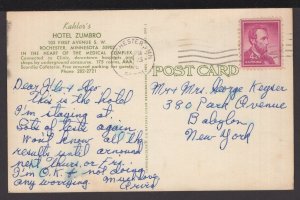 Kahler's
HOTEL ZUMBRO
103 FIRST AVENUE S. W.
ROCHESTER, MINNESOTA 55902
IN THE HEART OF THE MEDICAL COMPLEX
Connected to Clinic, downtown hospitals and
shops by underground concourse. 175 rooms.
Scovilla Cafeteria. Free covered parking for guests.
Phone: 282-2721
POST CARD
ROCHESTER, MINN.
Dear Flo & Geo
This is the hotel
I'm staying at.
Lots of tests again
Won't know all the
results until around
next thurs. or Fri.
I'm O.K. & not doing
any worrying. Much love,
Mr + Mrs. George Keyser
380 Park Avenue
Babylon
New York